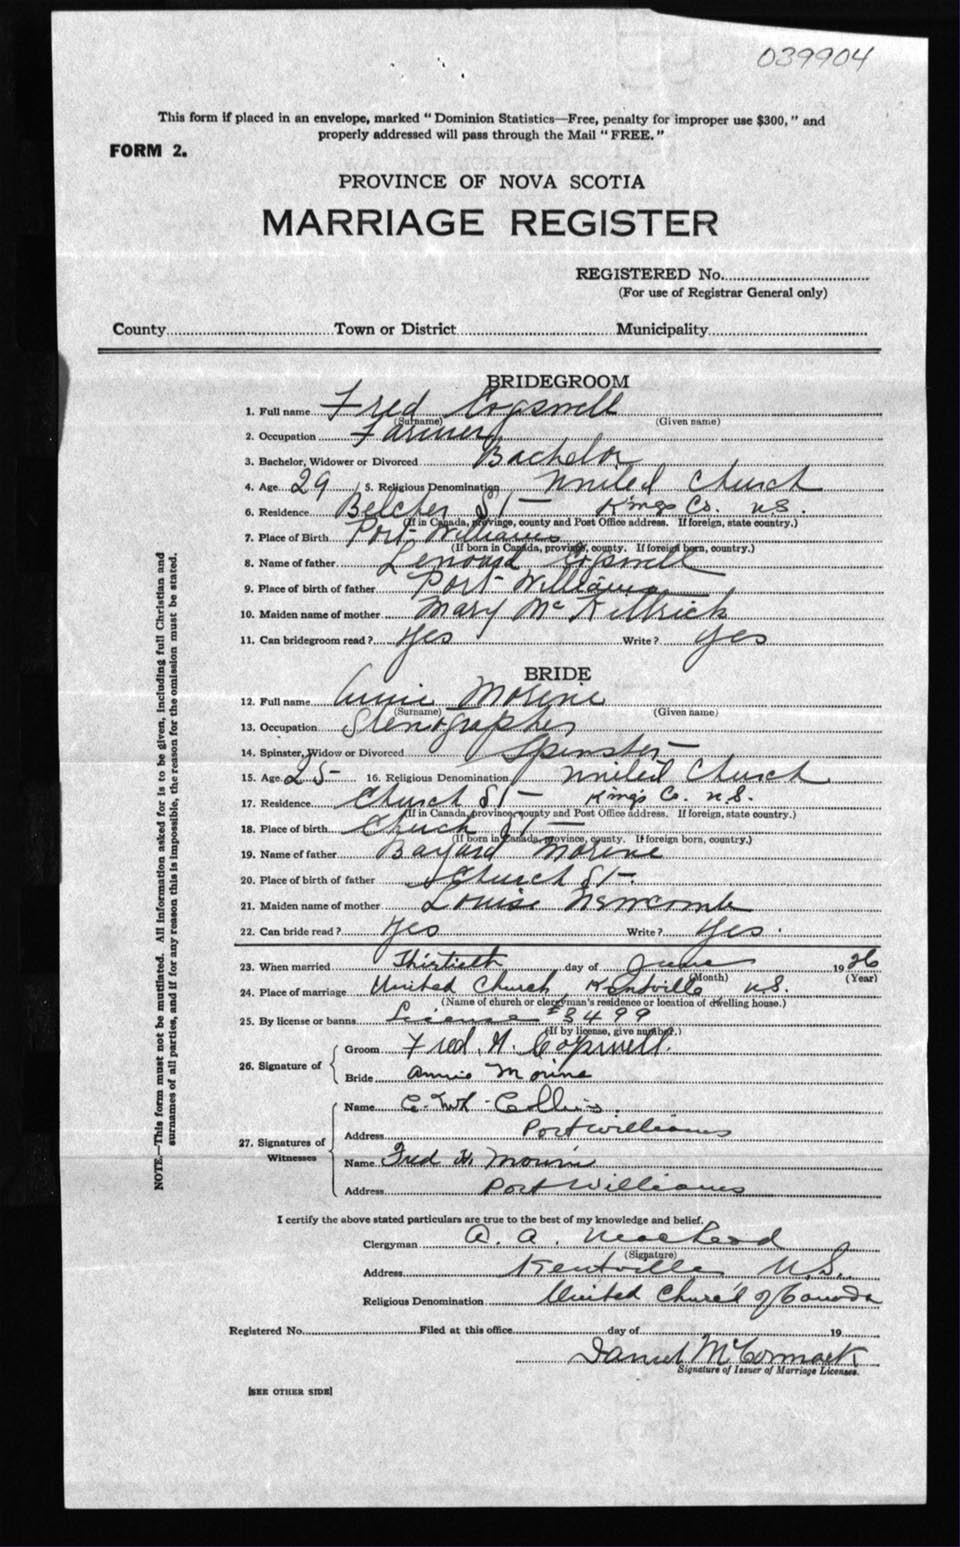 039904
This form if placed in an envelope, marked "Dominion Statistics—Free, penalty for improper use $300," and
properly addressed will pass through the Mail "FREE."
FORM 2.
PROVINCE OF NOVA SCOTIA
MARRIAGE REGISTER
REGISTERED No.
(For use of Registrar General only)
County Town or District Municipality
BRIDEGROOM
1. Full name Fred Cogswell
(Surname) (Given name)
2. Occupation Farmer
3. Bachelor, Widower or Divorced Bachelor
4. Age 29 5. Religious Denomination United Church
6. Residence Belcher St Kings Co. N.S.
(If in Canada, province, county and Post Office address. If foreign, state country.)
7. Place of Birth Port Williams
(If born in Canada, province, county. If foreign born, country.)
8. Name of father Lenoard Cogswell
9. Place of birth of father Port Williams
10. Maiden name of mother Mary McKittrick
11. Can bridegroom read? Yes Write? Yes
BRIDE
12. Full name Annie Morine
(Surname) (Given name)
13. Occupation Stenographer
14. Spinster, Widow or Divorced Spinster
15. Age 25 16. Religious Denomination United Church
17. Residence Church St Kings Co. N.S.
(If in Canada, province, county and Post Office address. If foreign, state country.)
18. Place of birth Church St
(If born in Canada, province, county. If foreign born, country.)
19. Name of father Bayard Morine
20. Place of birth of father Church St.
21. Maiden name of mother Louise Newcomb
22. Can bride read? Yes Write? Yes.
23. When married Thirtieth day of June 1926
(Month) (Year)
24. Place of marriage United Church Kentville N.S.
(Name of church or clergyman's residence or location of dwelling house.)
25. By license or banns License #3499
(If by license, give number.)
26. Signature of
Groom Fred A. Cogswell.
Bride Annie Morine
27. Signatures of Witnesses
Name Collins.
Address Port Williams
Name Fred H. Morine
Address Port Williams
I certify the above stated particulars are true to the best of my knowledge and belief.
Clergyman A. A. MacLeod
(Signature)
Address Kentville N.S.
Religious Denomination United Church of Canada
Registered No. Filed at this office day of 19
Daniel McCormack
Signature of Issuer of Marriage Licenses.
[SEE OTHER SIDE]
NOTE.—This form must not be mutilated. All information asked for is to be given, including full Christian and
surnames of all parties, and if for any reason this is impossible, the reason for the omission must be stated.